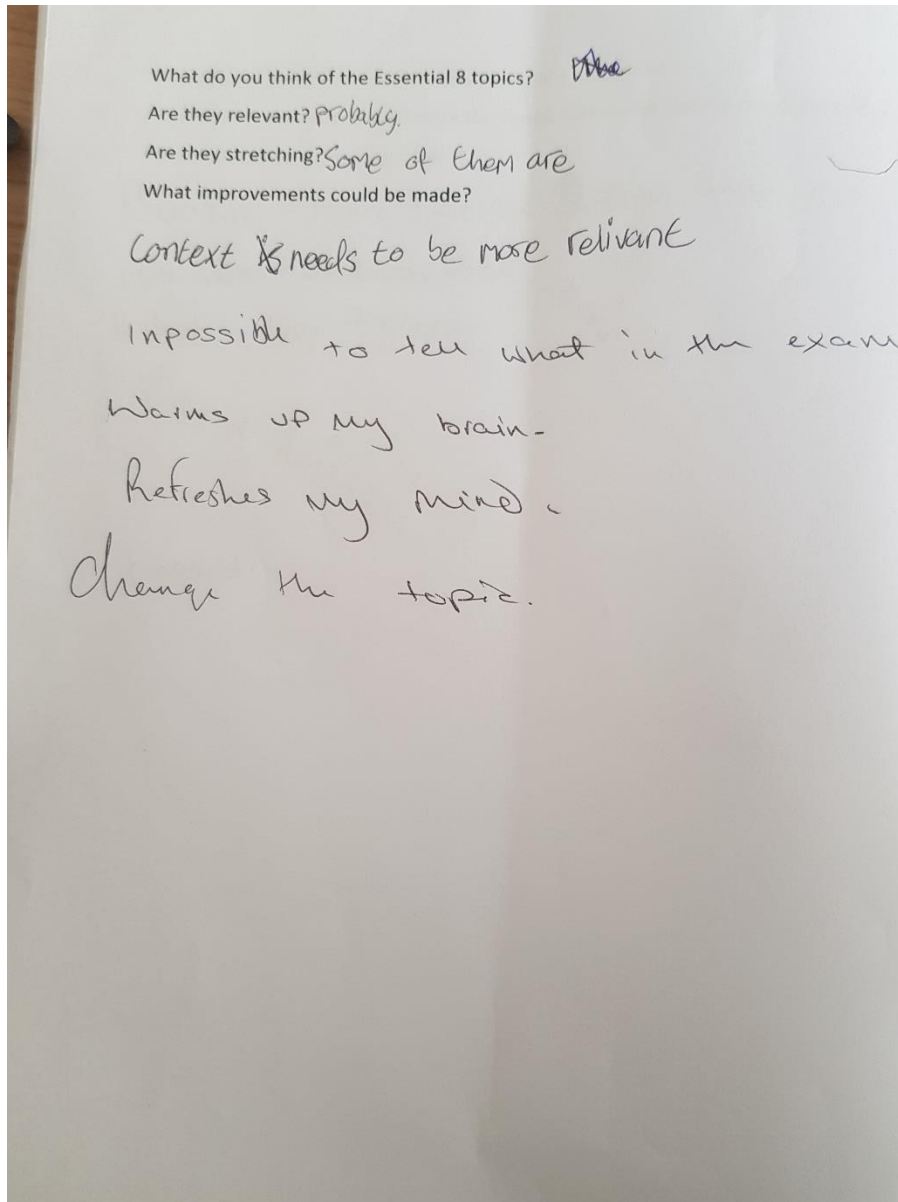 What do you think of the Essential 8 topics?
Are they relevant? probably.
Are they stretching? Some of them are
What improvements could be made?
Context needs to be more relivant
Inpossible to tell what in the exam
Warms up my brain-
Refreshes my mind.
Change the topic.